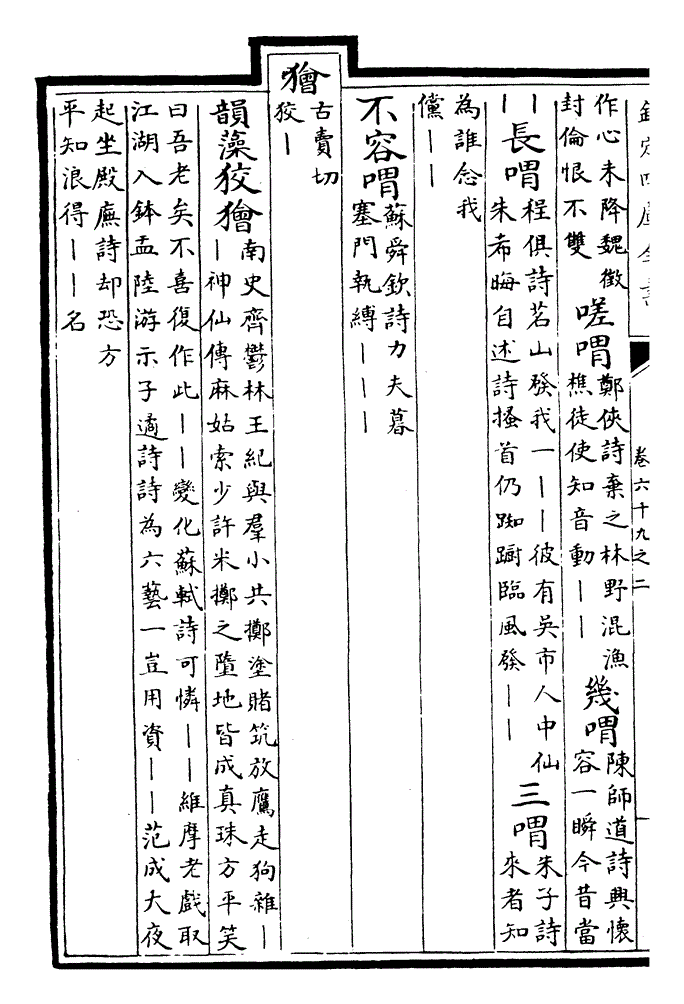 欽定四庫全書 卷六十九之二
作心未降魏徵
封倫恨不雙
嗟喟
鄭俠詩棄之林野混漁
樵徒使知音動｜｜
幾喟
陳師道詩興懷
容一瞬今昔當
｜
｜
長喟
程俱詩茗山發我一｜｜彼有吳市人中仙
朱希晦自述詩搔首仍踟蹰臨風發｜｜
三喟
朱子詩
來者知
為誰念我
儻｜｜
不容喟
蘇舜欽詩力夫暮
塞門執縛｜｜｜
獪
古賣切
狡｜
韻藻狡獪
南史齊鬱林王紀與羣小共擲塗賭筑放鷹走狗雜｜
｜神仙傳麻姑索少許米擲之墮地皆成真珠方平笑
曰吾老矣不喜復作此｜｜變化蘇軾詩可憐｜｜維摩老戲取
江湖入鉢盂陸游示子遹詩詩為六藝一豈用資｜｜范成大夜
起坐殿廡詩却恐方
平知浪得｜｜名